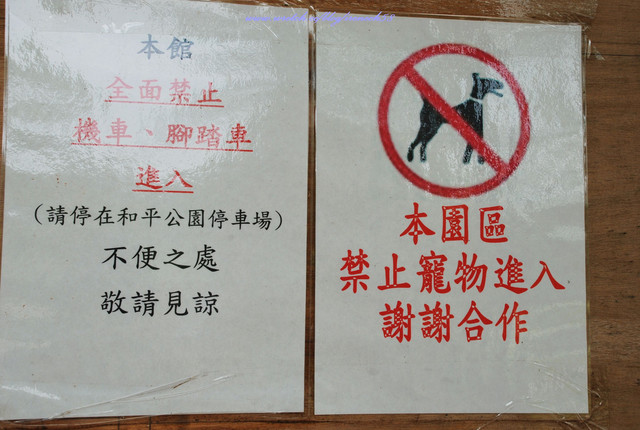 本館
全面禁止
機車、腳踏車
進入
(請停在和平公園停車場)
不便之處
敬請見諒
本園區
禁止寵物進入
謝謝合作